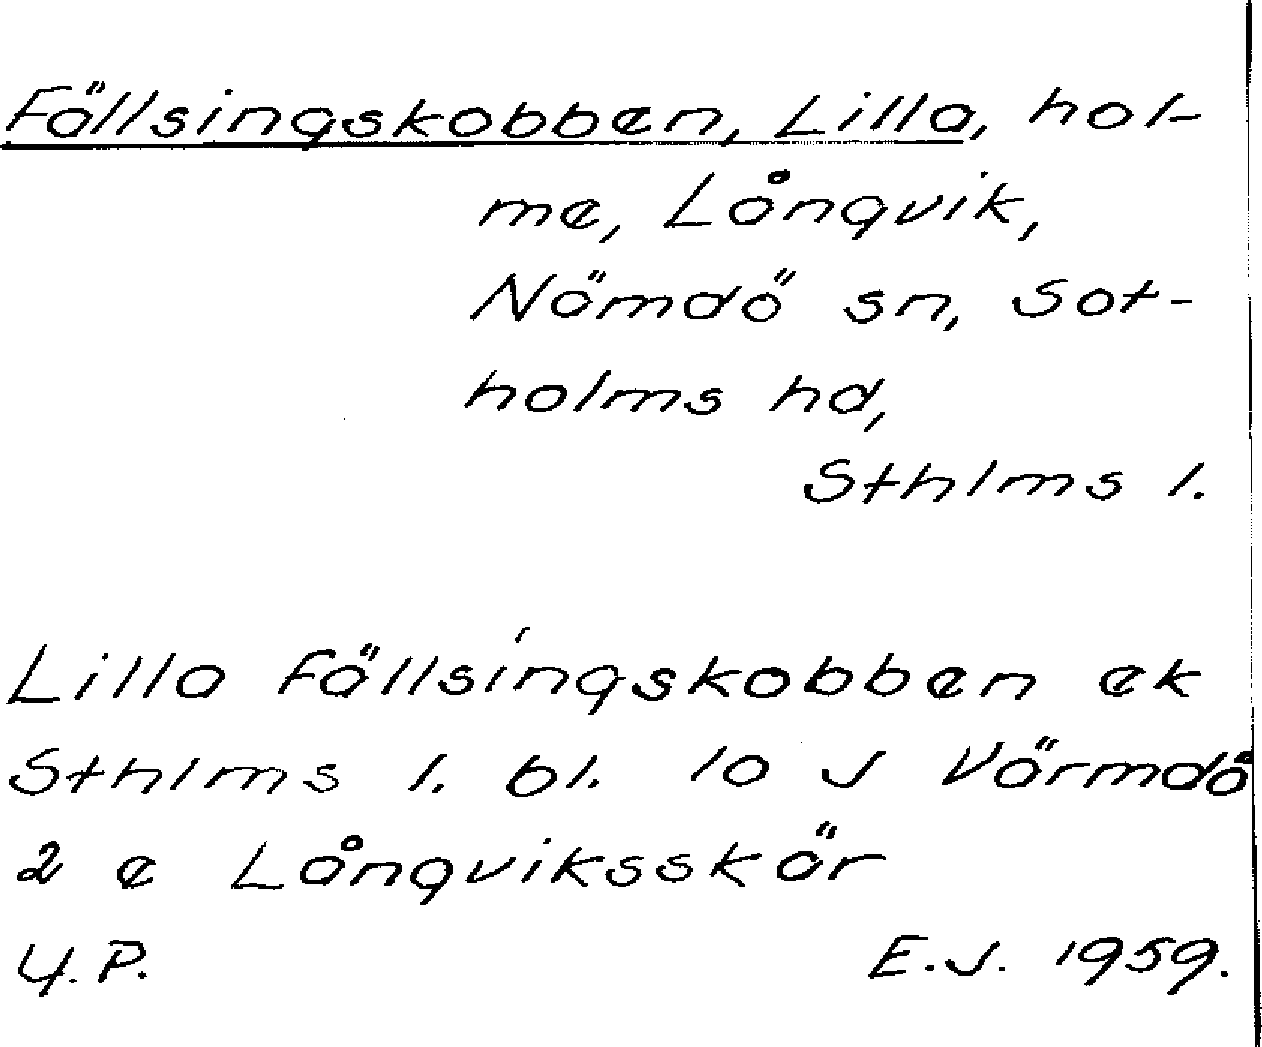 Fällsingskobben, Lilla, hol-
me, Långvik,
Nämdö sn, Sot-
holms hd,
Sthlms l.
Lilla Fällsingskobben ek
Sthlms l. bl. 10 J Värmdö
2 e Långviksskär
Y. P. E. J. 1959.